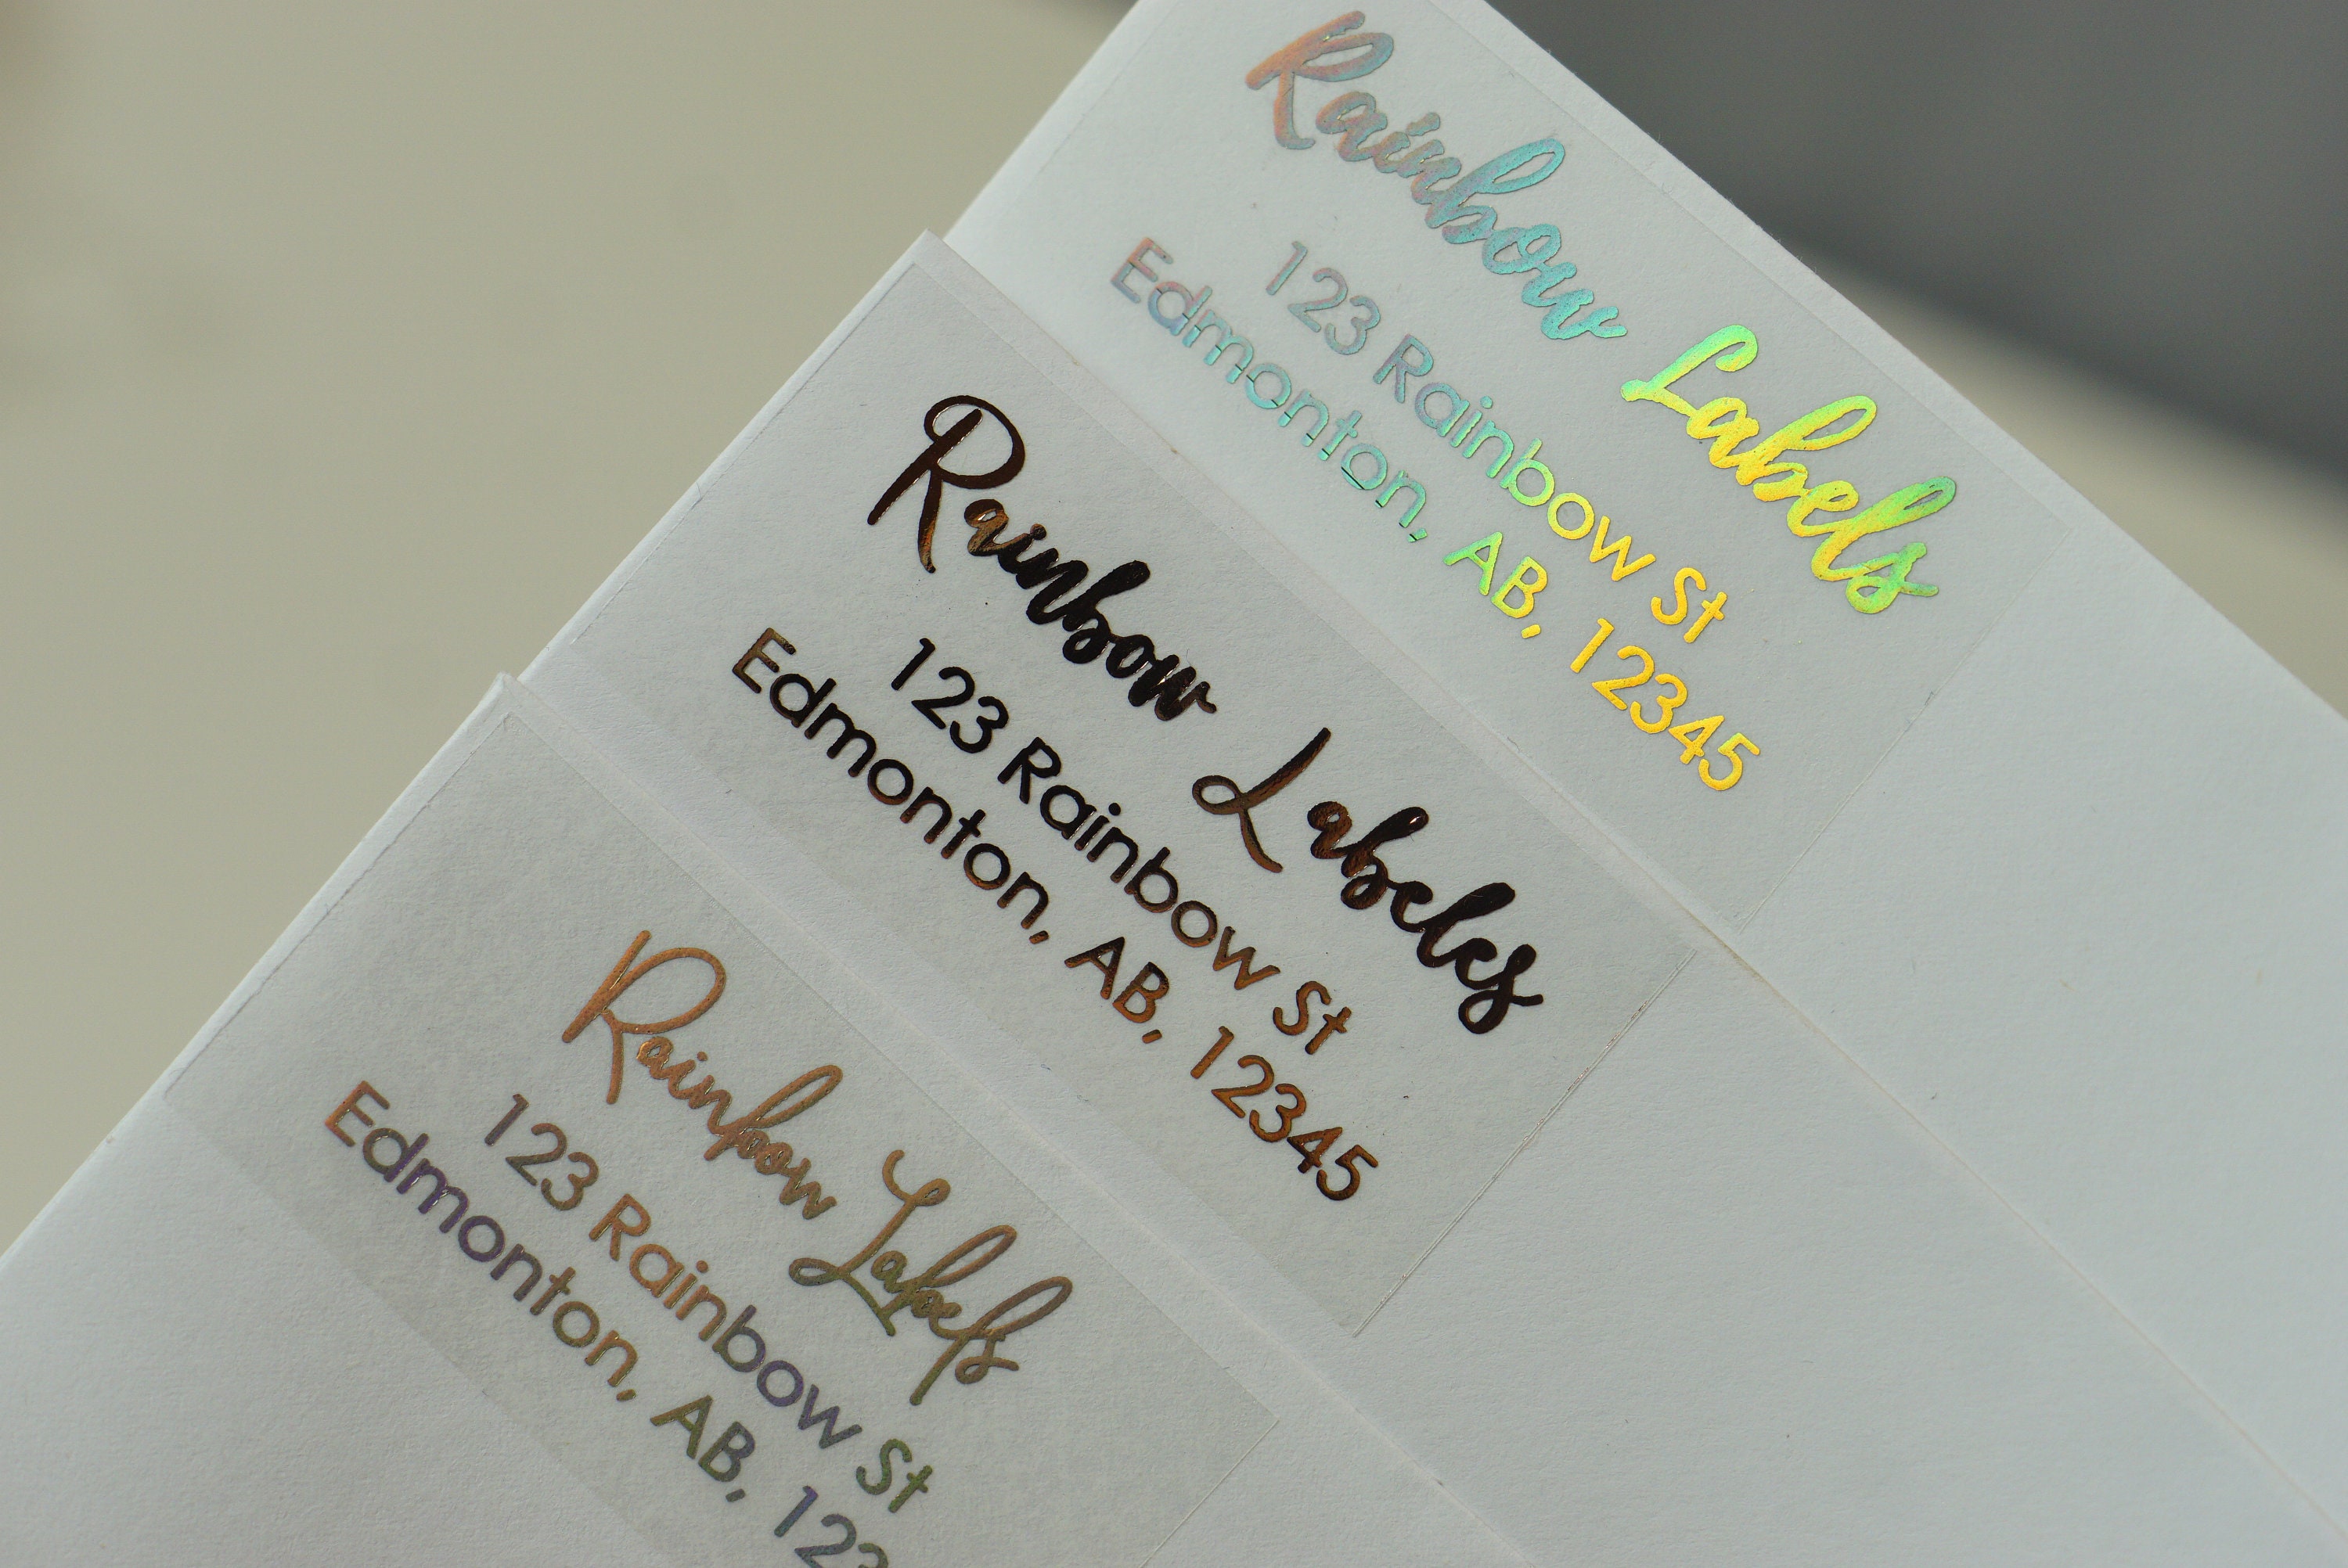 Rainbow Labels
123 Rainbow St
Edmonton, AB, 12345
Rainbow Labels
123 Rainbow St
Edmonton, AB, 12345
Rainbow Labels
123 Rainbow St
Edmonton, AB, 123